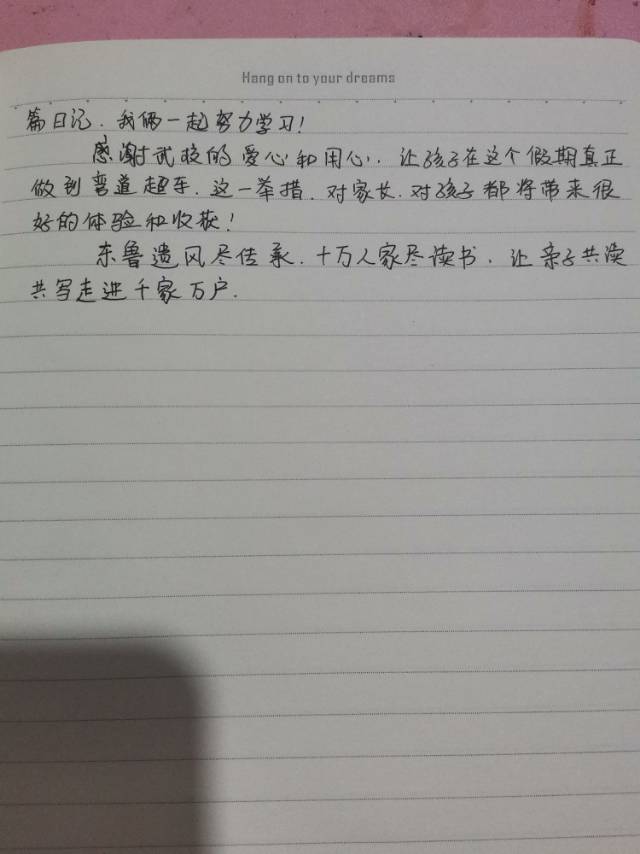 Hang on to your dreams
篇日记.我俩一起努力学习!
感谢武校的爱心和用心.让孩子在这个假期真正
做到弯道超车.这一举措.对家长.对孩子都将带来很
好的体验和收获!
东鲁遗风尽传承.十万人家尽读书.让亲子共读
共写走进千家万户.